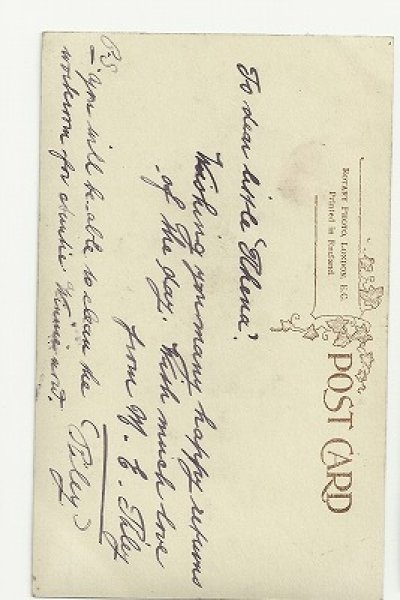 POST CARD
ROTARY PHOTO, LONDON, E.C.
Printed in England
To dear little "Rhena".
Wishing you many happy returns
of the day. With much love
from M. E. Piley
(Piley)
P.S you will be able to clean the
workroom for Auntie Winnie now.